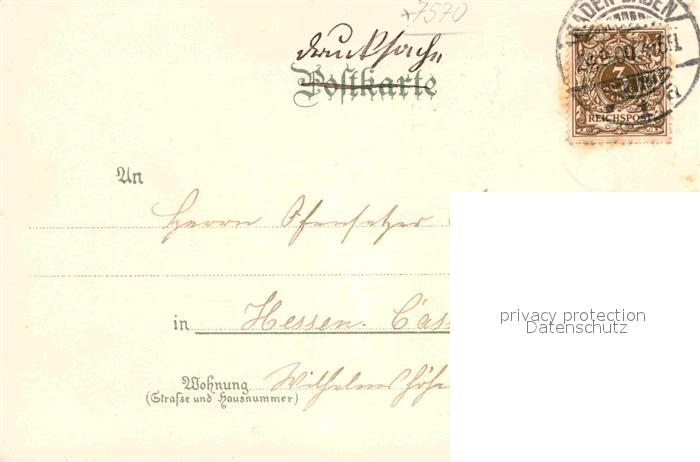 *7570
Drucksache
Postkarte
BADEN-BADEN
3
REICHSPOST
An
Herrn Ofensetzer
in Hessen-Cass
Wohnung Wilhelmshöhe
(Straße und Hausnummer)
privacy protection
Datenschutz